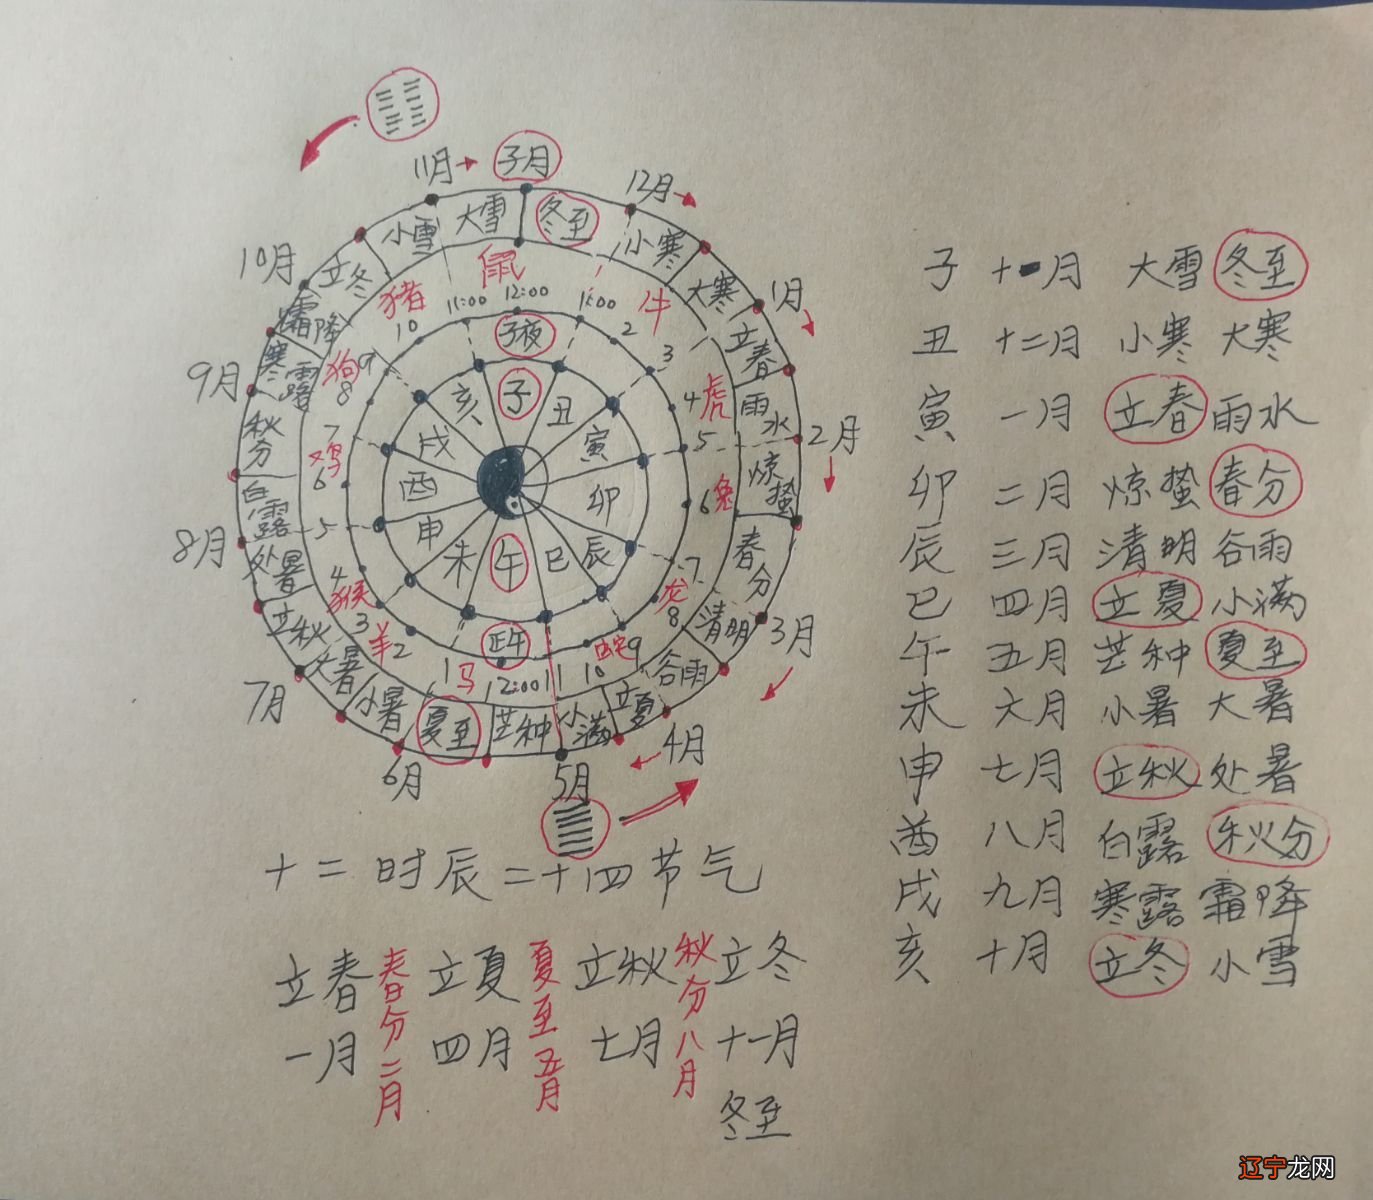 11月
子月
12月
1月
2月
3月
4月
5月
6月
7月
8月
9月
10月
大雪
冬至
小寒
大寒
立春
雨水
惊蛰
春分
清明
谷雨
立夏
小满
芒种
夏至
小暑
大暑
立秋
处暑
白露
秋分
寒露
霜降
立冬
小雪
鼠
牛
虎
兔
龙
蛇
马
羊
猴
鸡
狗
猪
11:00
12:00
1:00
2
3
4
5
6
7
8
9
10
11
12:00
1
2
3
4
5
6
7
8
9
10
子夜
正午
子
丑
寅
卯
辰
巳
午
未
申
酉
戌
亥
子 十一月 大雪 冬至
丑 十二月 小寒 大寒
寅 一月 立春 雨水
卯 二月 惊蛰 春分
辰 三月 清明 谷雨
巳 四月 立夏 小满
午 五月 芒种 夏至
未 六月 小暑 大暑
申 七月 立秋 处暑
酉 八月 白露 秋分
戌 九月 寒露 霜降
亥 十月 立冬 小雪
十二时辰二十四节气
立春 春分二月 立夏 夏至五月 立秋 秋分八月 立冬
一月 四月 七月 十一月
冬至
辽宁龙网